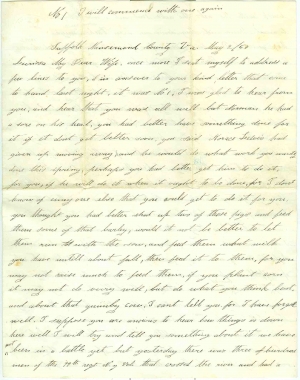 No 1 I will commence with one again
Suffolk Nansemond County Va May 2/63
Dear Wife, once more I seat myself to address a
few lines to you, in answer to your kind letter that came
to hand last night, it was No 2, I was glad to hear from
you, and hear that you was all well but
a sore on his hand, you had better have something done for
it if it dont get better soon, you said
given up moving away, and he would do what work you wanted
done this spring, perhaps you had better get him to do it,
for you, if he will do it when it ought to be done, for I dont
know of any one else that you could get to do it for you,
you thought you had better shut up two of those pigs and feed
them some of that barley, would it not be better to let
them run with the sow, and feed them what
you have untill about fall, then feed it to them, for you
may not raise much to feed them, if you plant corn
it may not do very well, but do what you think best,
and about that cow, I cant tell you for I have forgot
well. I suppose you are anxious to hear how things is down
here well I will try and tell you something about it we have
not been in a battle yet but yesterday there was three or hundred
men of the 99th regt N York that crossed the river and had a